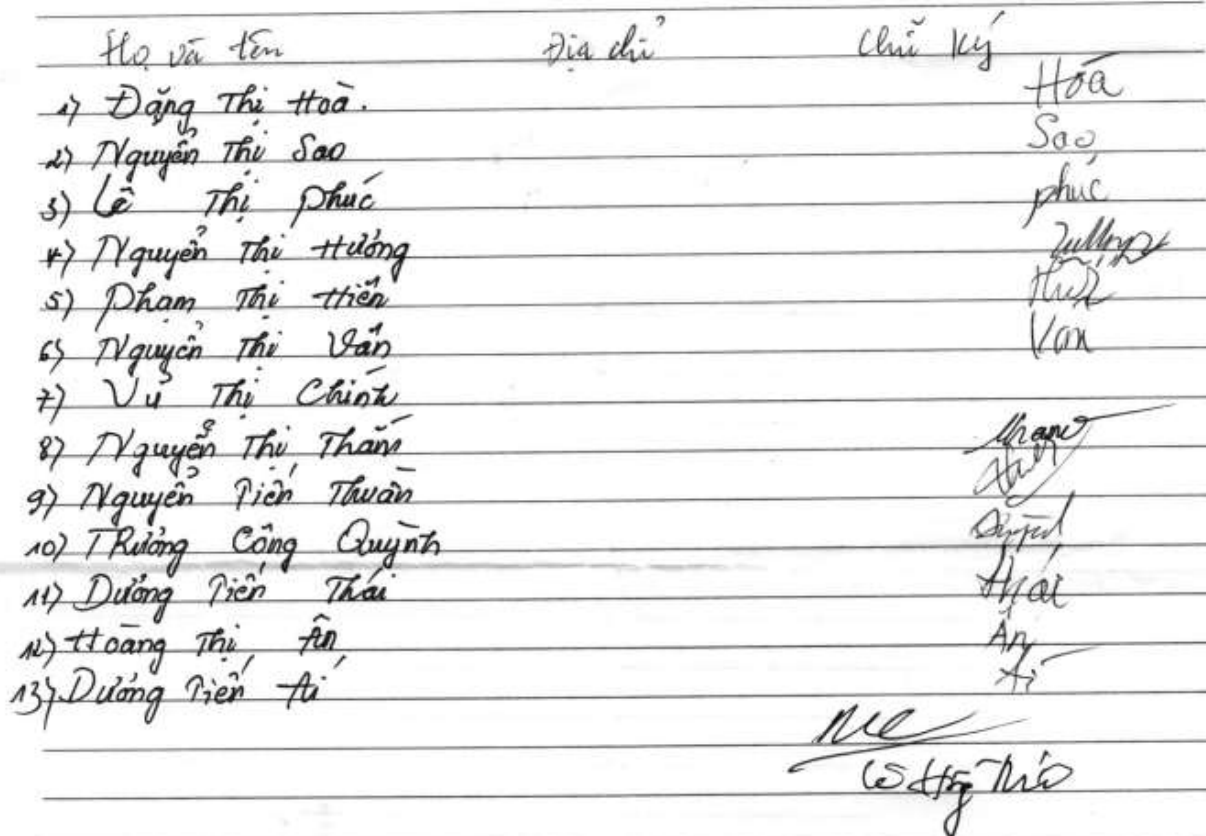 Họ và tên Địa chỉ Chữ ký
1) Đặng Thị Hoà. Hoà
2) Nguyễn Thị Sao Sao
3) Lê Thị Phúc phúc
4) Nguyễn Thị Hương
5) Phạm Thị Hiền
6) Nguyễn Thị Vân Van
7) Vũ Thị Chính
8) Nguyễn Thị Thắm
9) Nguyễn Tiến Thuần
10) TRương Công Quỳnh
11) Dương Tiến Thái Thái
12) Hoàng Thị Ân Ân
13) Dương Tiến Ái Ái